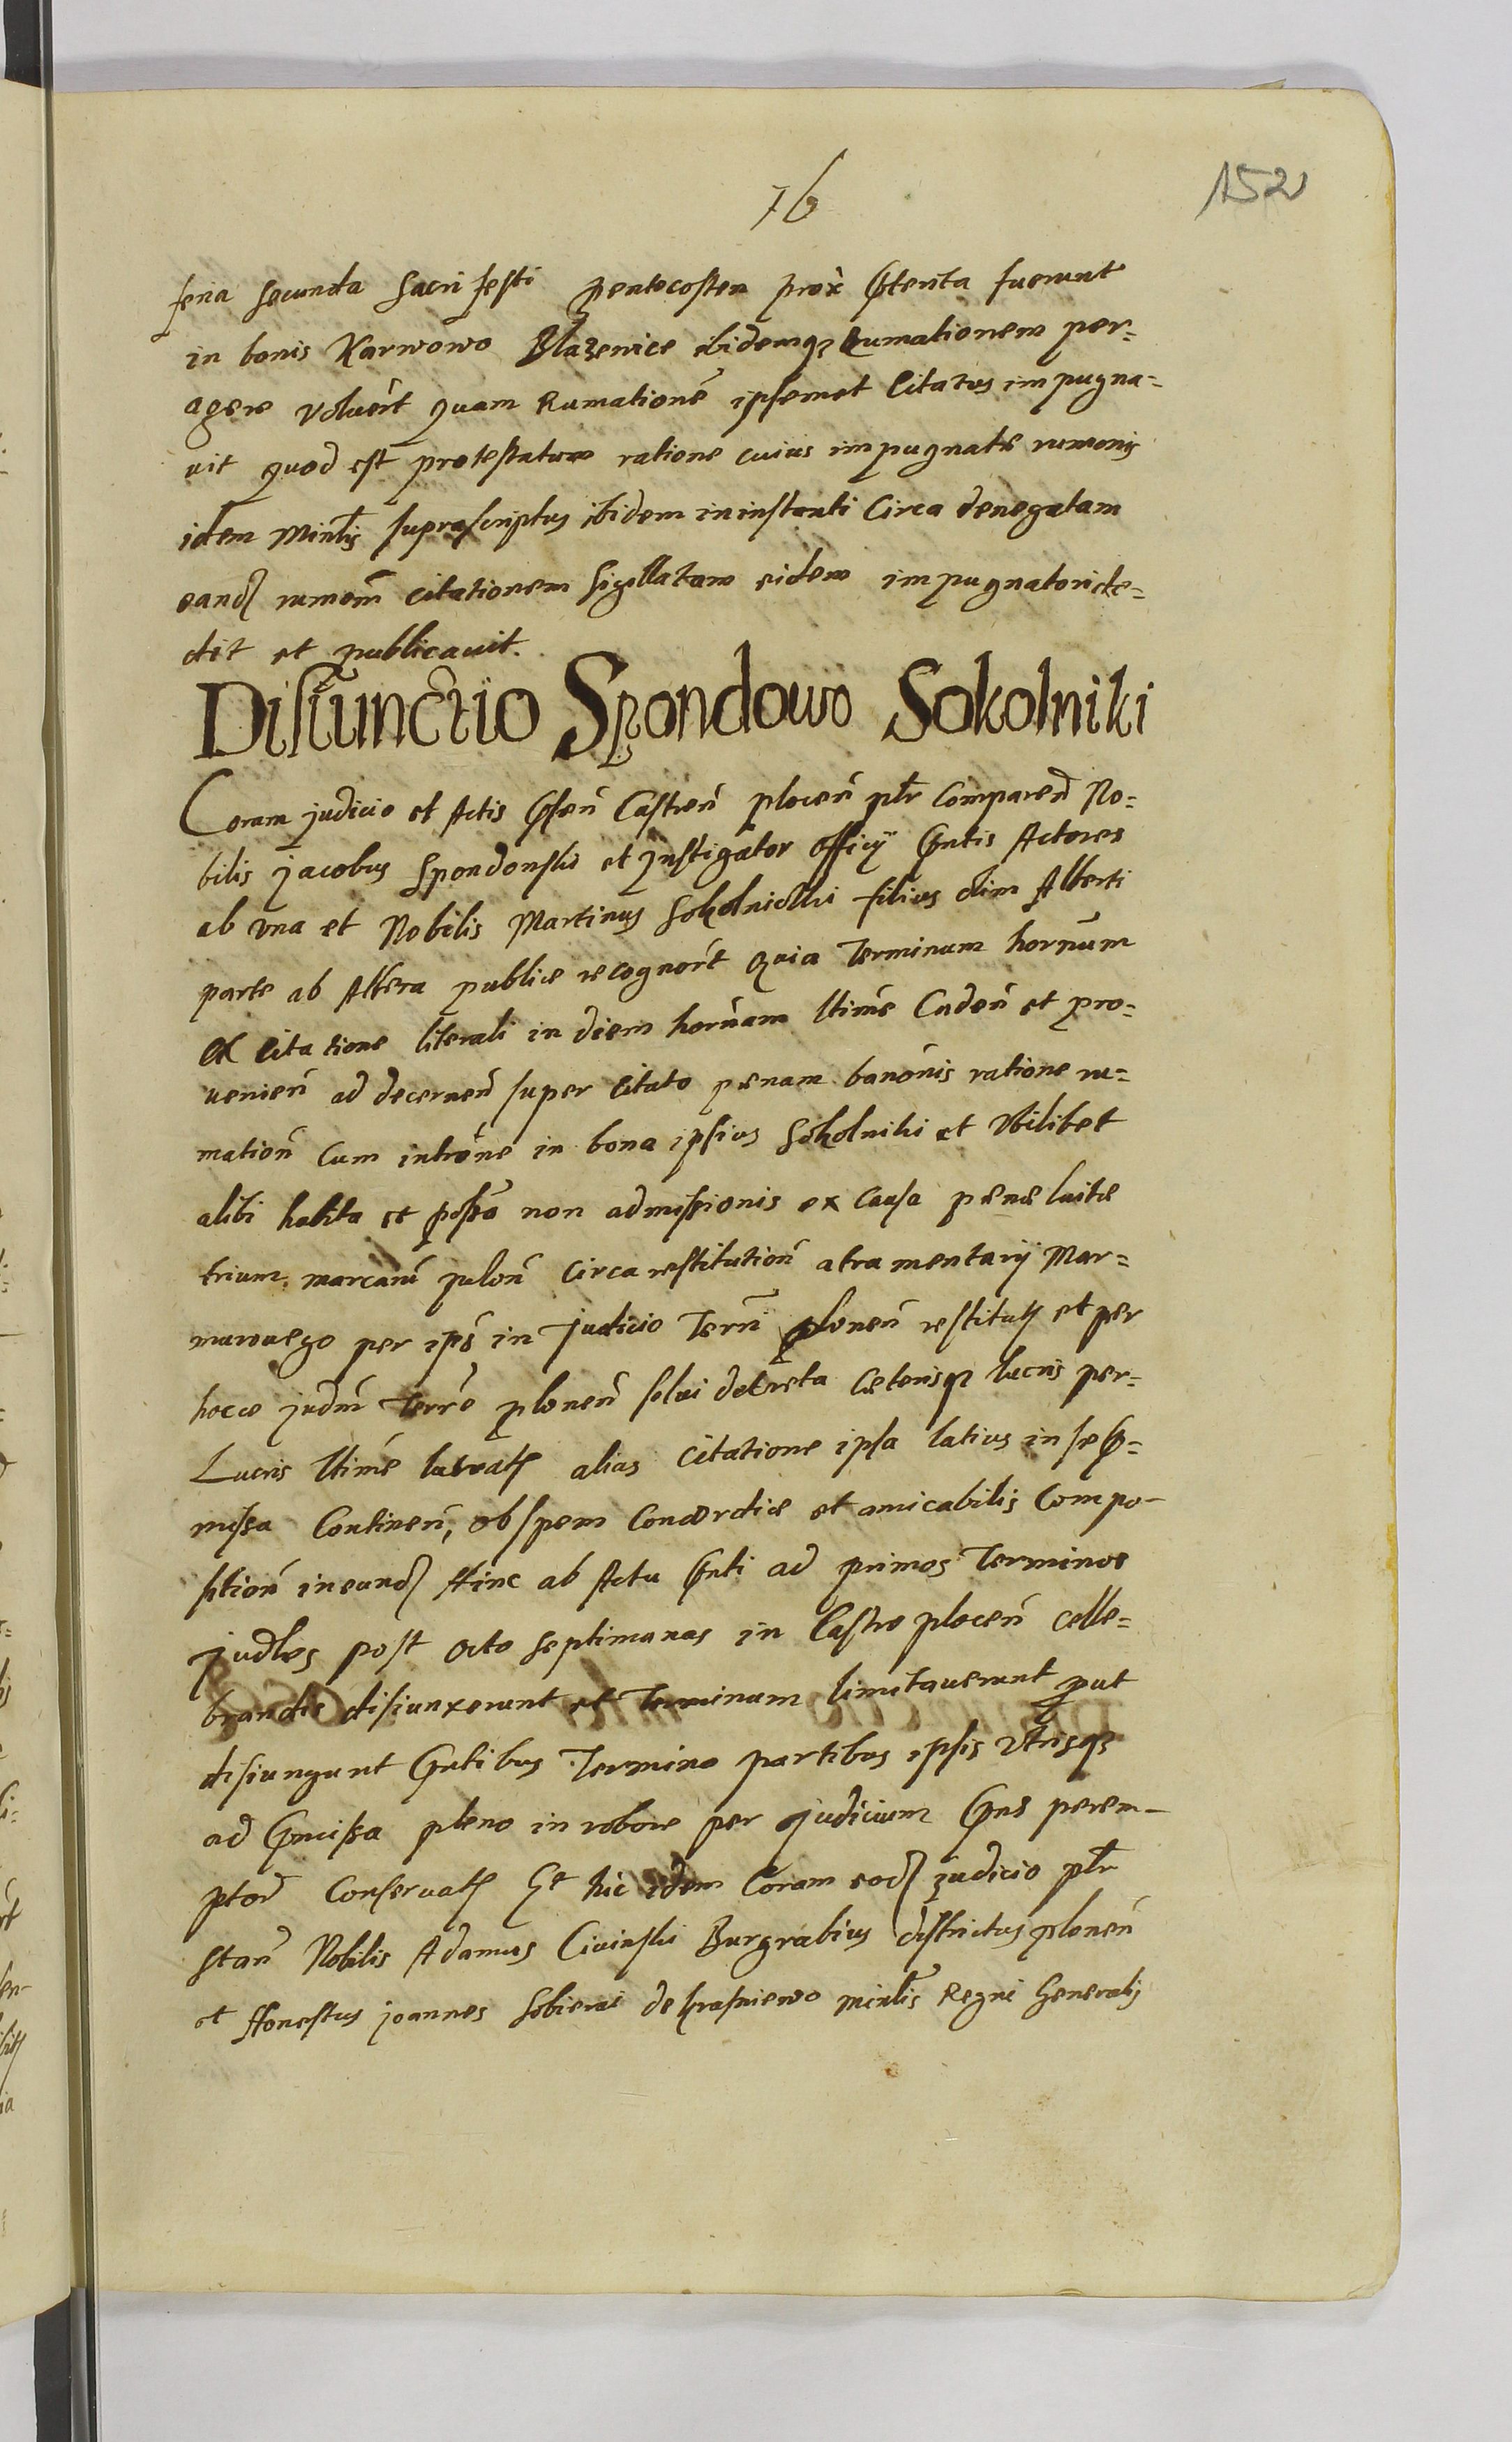 76
152
feria secunda sacri festi pentecosten prox ptenta fuerunt
in bonis Karwowo Blazenice ibidemq Rumationem per=
agere voluerit quam Rumationē ipsemet Citatus impugna=
uit quod est protestatum ratione cuius impugnatæ rumonis
idem Minlis suprascriptus ibidem in instanti Circa denegatam
eand rumonem citationem sigillatam eidem impugnatori de=
dit et publicauit.
Disiunctio Spondowo Sokolniki
Coram judicio et Actis psen Castren plocen plr Comparen No=
bilis Jacobus Spondonski et Instigator officij pntis Actores
ab vna et Nobilis Martinus Sokolnicki filius olim Alberti
parte ab Altera publice recognort quia Terminum hornum
ex citatione literali in diem hornam ltime Caden et pro=
uenien ad decernen super Citato pænam banonis ratione ru=
mation Cum introne in bona ipsius Sokolniki et Vbilibet
alibi habita et possa non admissionis ex Causa pænæ luitæ
trium marcarū polon Circa restitution atramentarij Mar=
murowego per ips in Judicio Terri plonen restitut et per
hocce judm Terre plonen solui decreta Cæterisq lucris per=
Lucris ltime lucrat alias citatione ipsa latius in se p=
missa Continen, ob spem Concordiæ et amicabilis Compo-
sition ineund Hinc ab Actu pnti ad primos Terminos
judles post octo septimanas in Castro plocen celle=
brandis disiunxerunt et Terminum limitauerunt put
disiungunt pntibus Termino partibus ipsis vtrisq
ad pmissa pleno in robore per judicium pns perem-
ptor Conseruat Et hic idem Coram eod Judicio plr
stan Nobilis Adamus Ciuinski Burgrabius districtus plonen
et Honestus joannes Sobierai de Krasniewo minlis Regni Generalis